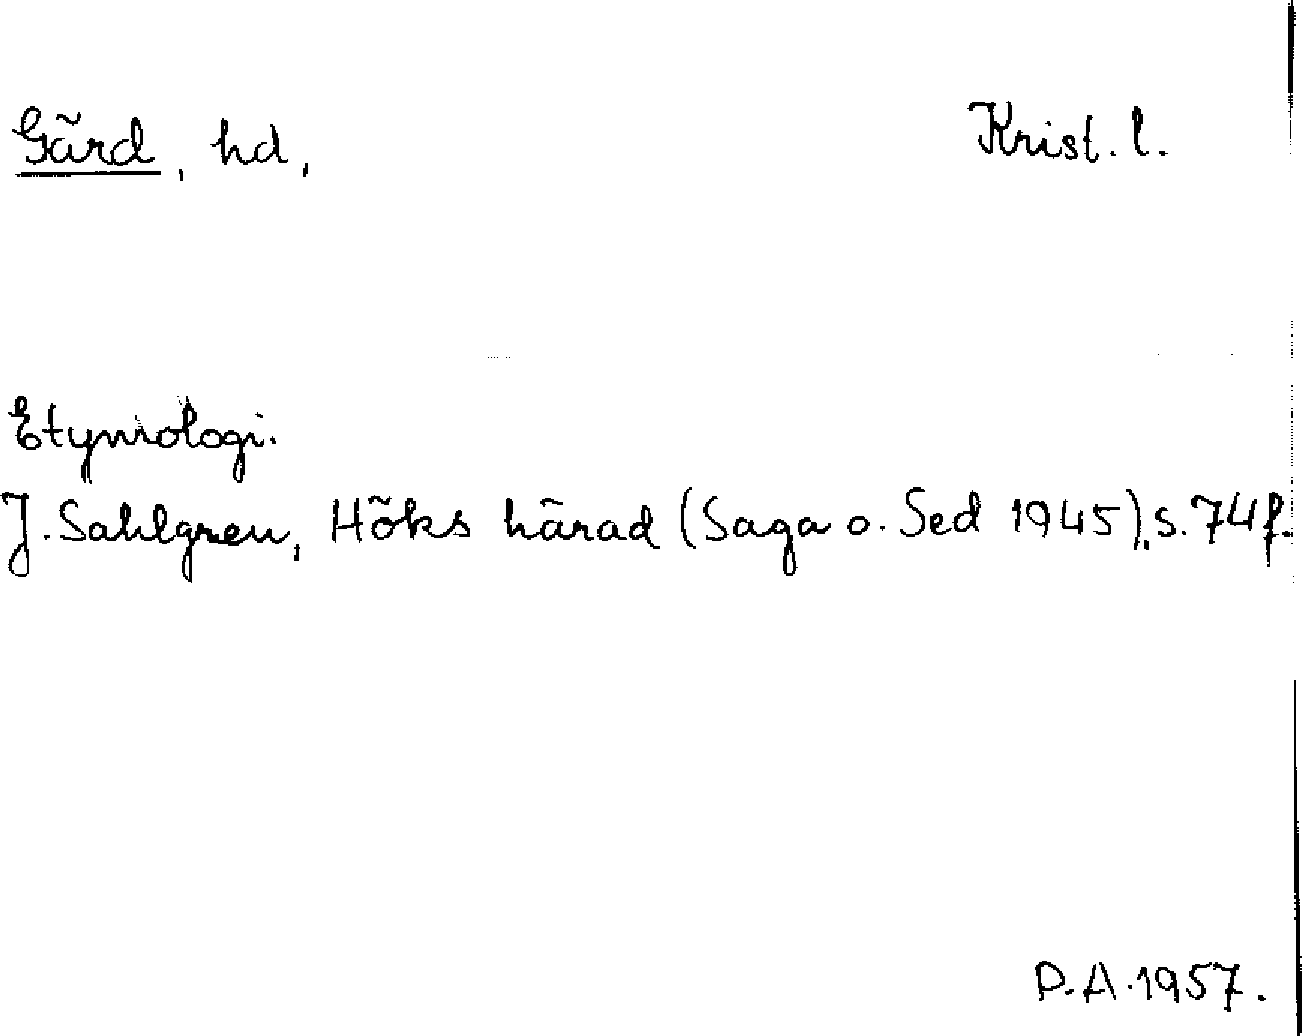 Gärd, hd, Krist. l.
Etymologi.
J. Sahlgren, Höks härad (Saga o. Sed 1945), s. 74 f.
D.A. 1957.